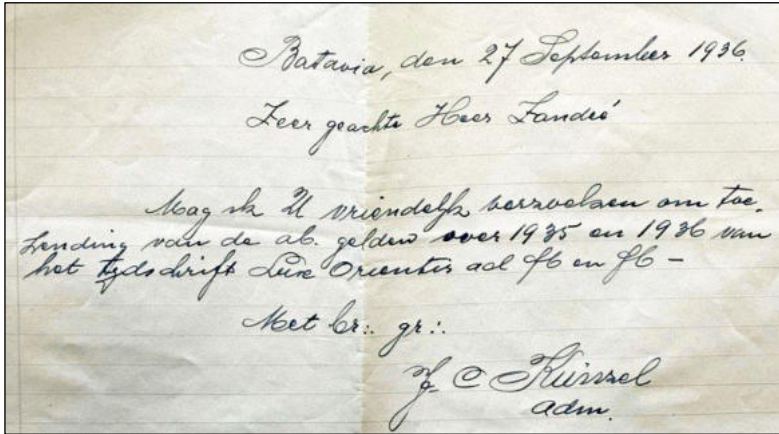 Batavia, den 27 September 1936.
Zeer geachte Heer Landré
Mag ik U vriendelijk verzoeken om toe-
zending van de ab. gelden over 1935 en 1936 van
het tijdschrift Luxe Orientis ad f6 en f6 –
Met br∴ gr∴
J. C Künzel
adm.